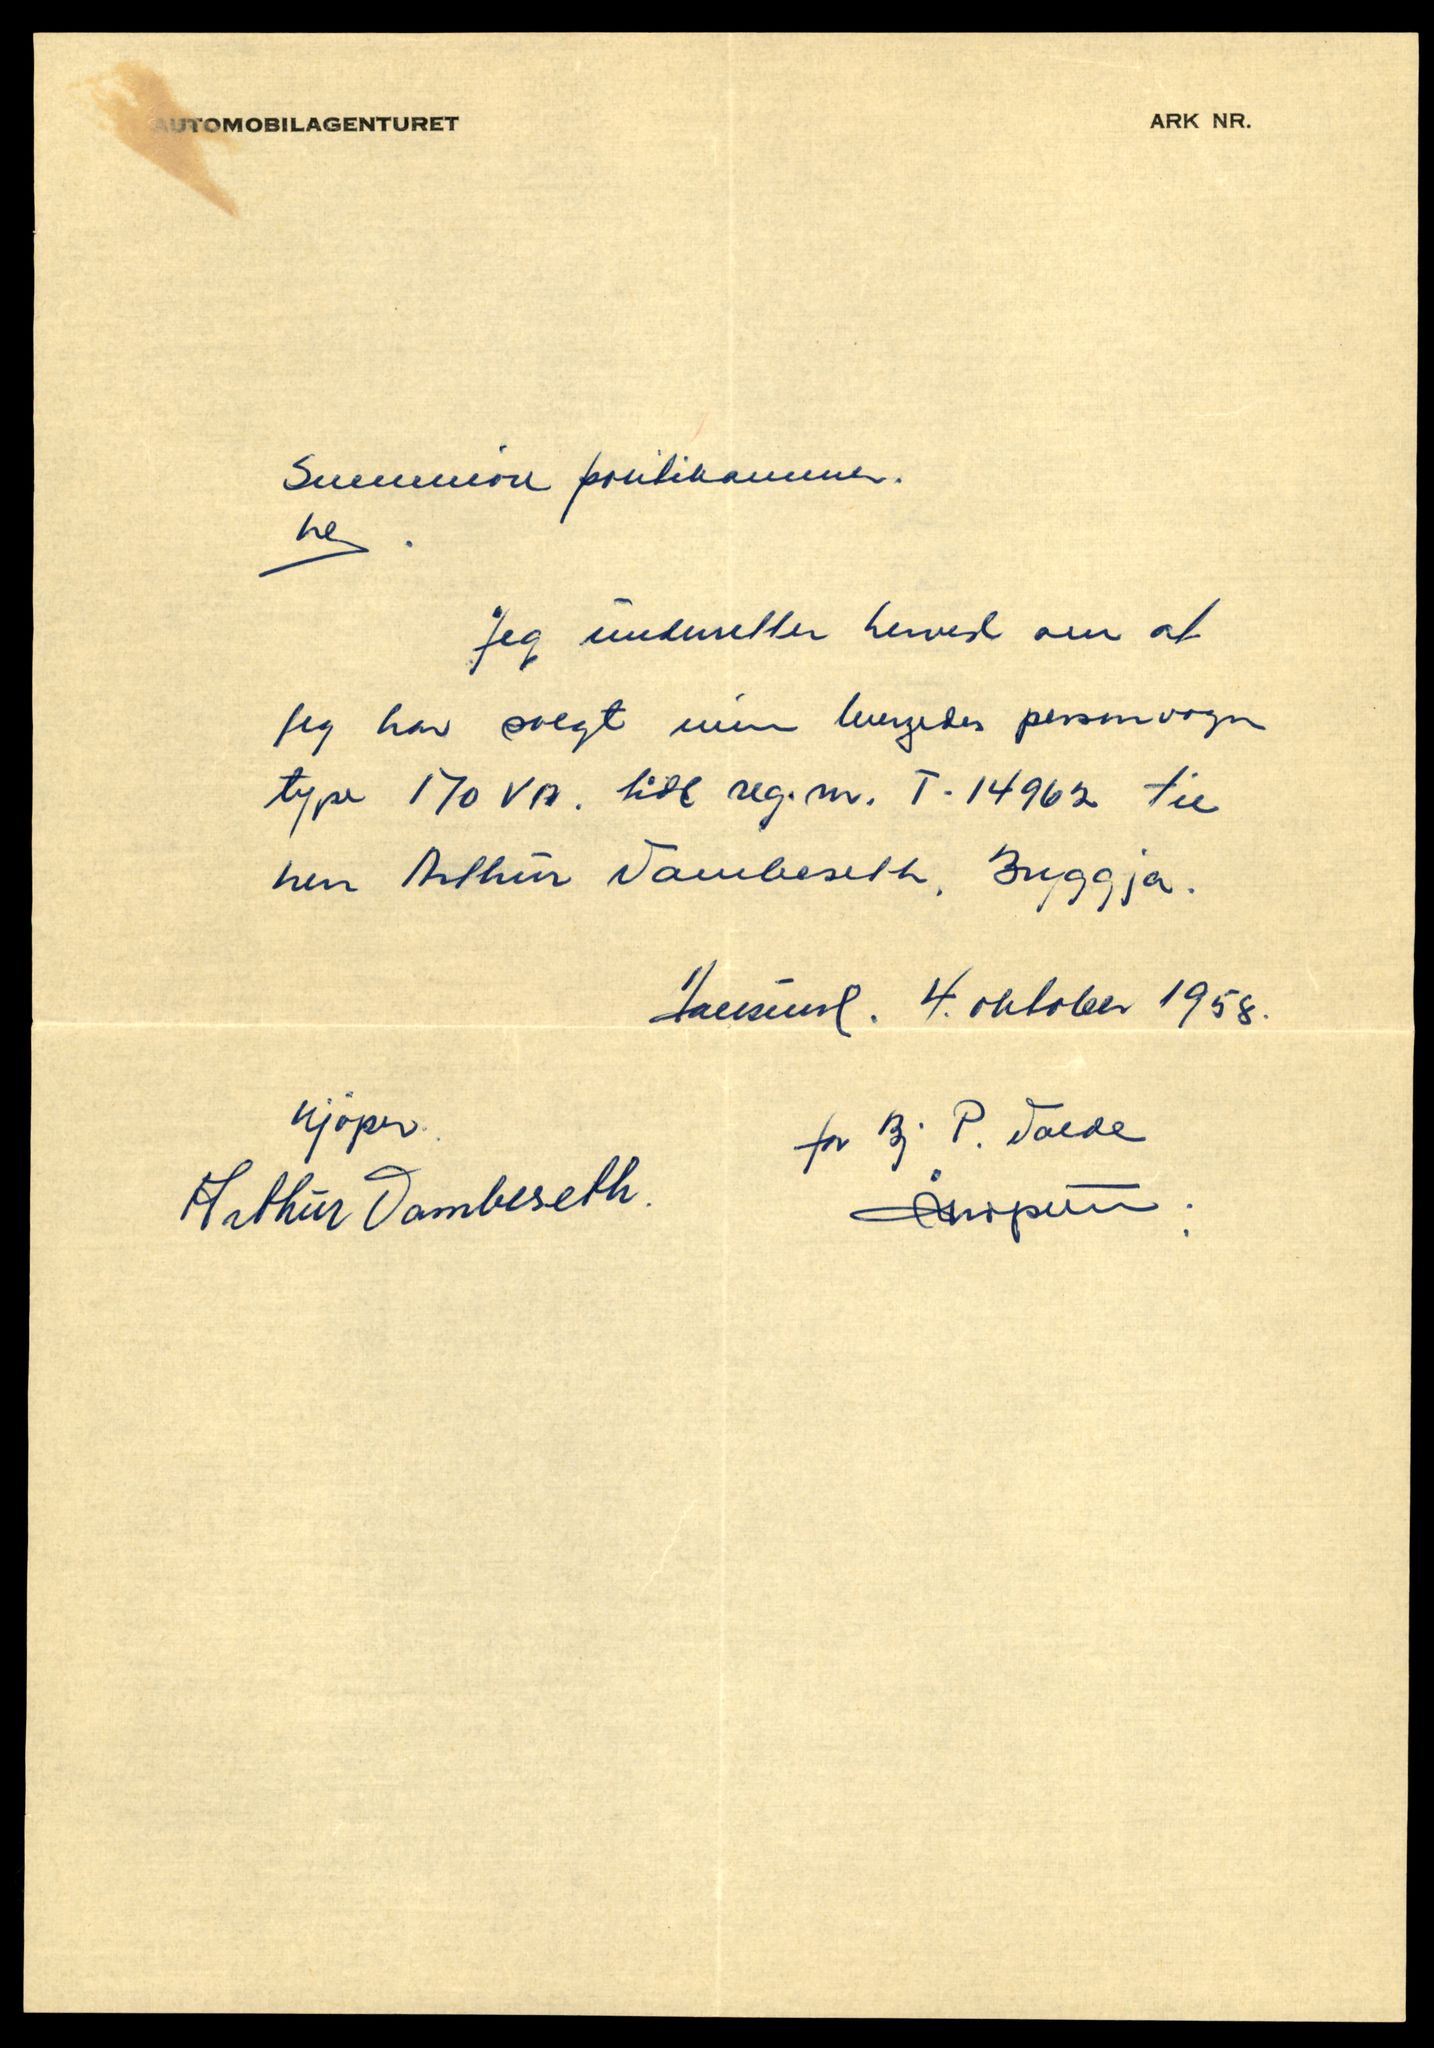 AUTOMOBILAGENTURET ARK NR.
Sunnmöre politikammer.
her.
Jeg ünderretter herved om at
jeg har solgt min Merzedes personvogn
type 170 VA. reg. nr. T-14962 til
herr Arthür Dambeseth, Bryggja.
Aalesünd. 4. oktober 1958.
kjöper.
for Bj. P. Valde
Arthür Dambeseth.